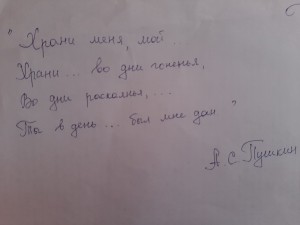 "Храни меня, мой
Храни... во дни гоненья,
Во дни раскаянья,...
Ты в день... был мне дан"
А. С. Пушкин